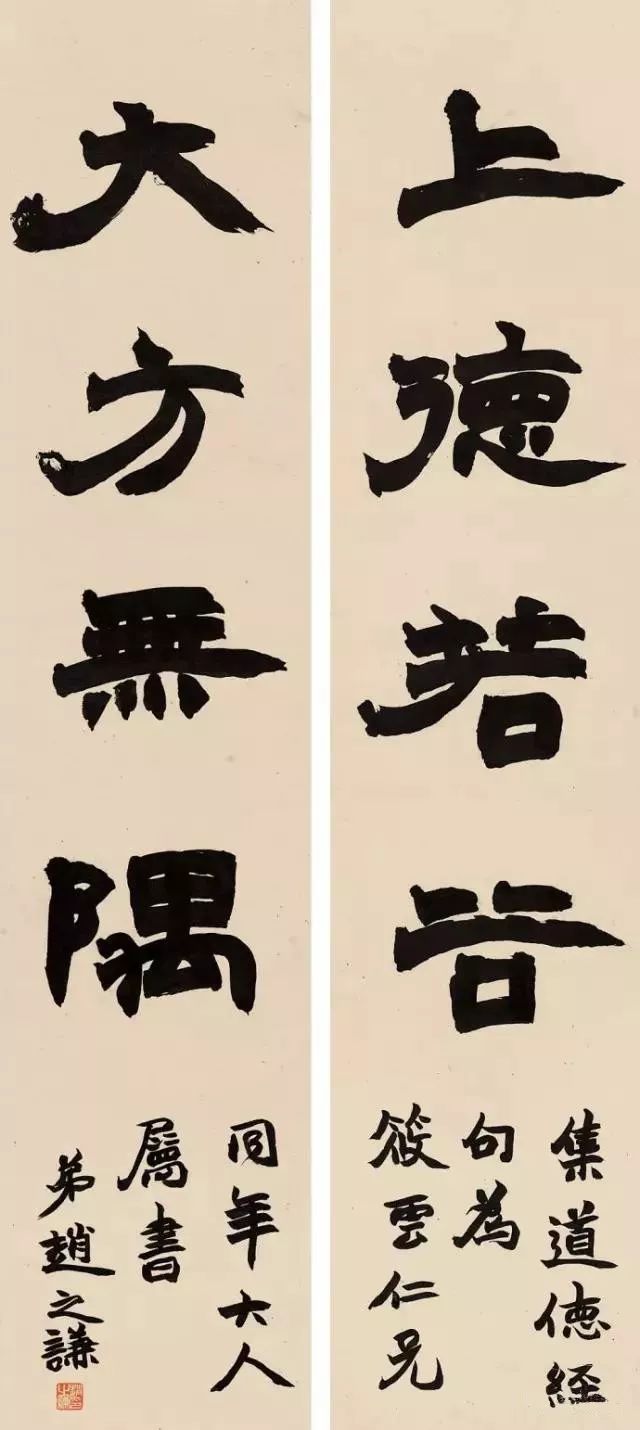 上德若谷
集道德經
句為
筱雲仁兄
大方無隅
同年大人
屬書
弟趙之謙